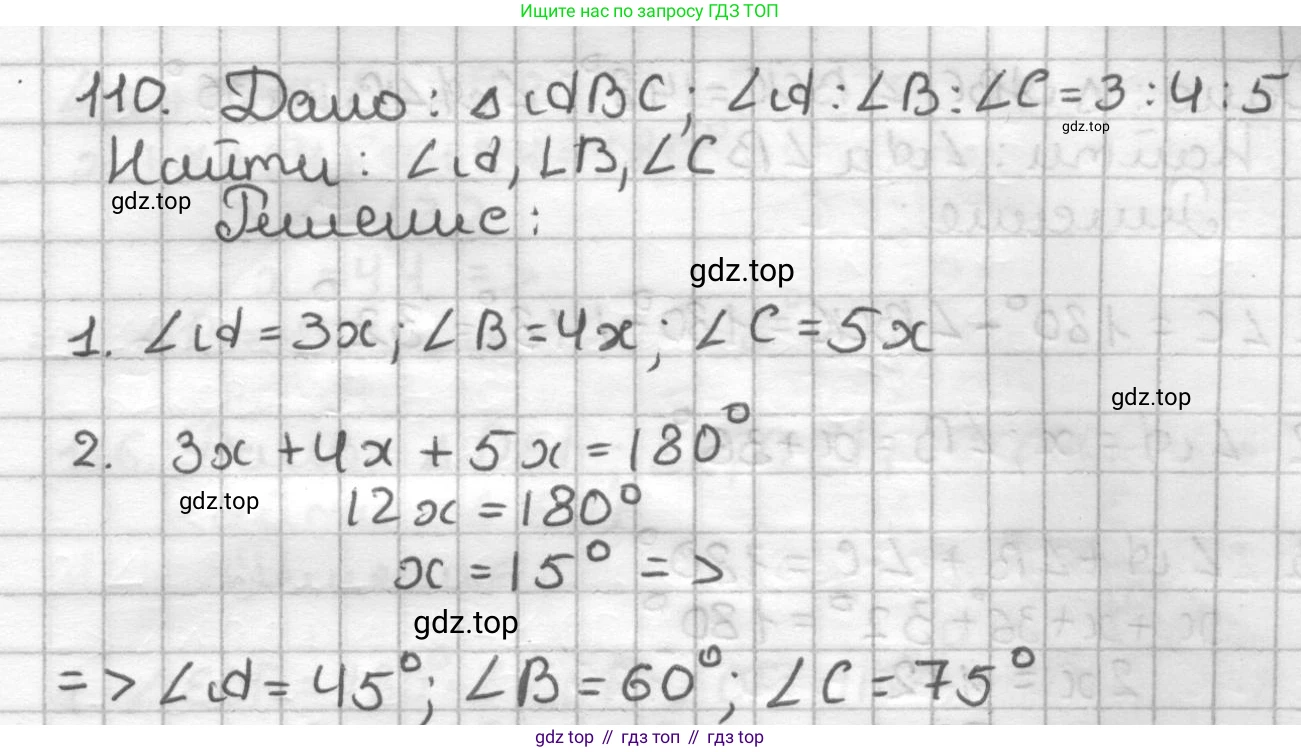 Ищите нас по запросу ГДЗ ТОП
110. Дано: △ABC; ∠A:∠B:∠C=3:4:5
gdz.top
Найти: ∠A, ∠B, ∠C
gdz.top
Решение:
gdz.top
1. ∠A=3x; ∠B=4x; ∠C=5x
gdz.top
2. 3x+4x+5x=180°
gdz.top
12x=180°
x=15° =>
gdz.top
=> ∠A=45°; ∠B=60°; ∠C=75°
gdz top // гдз топ // gdz top